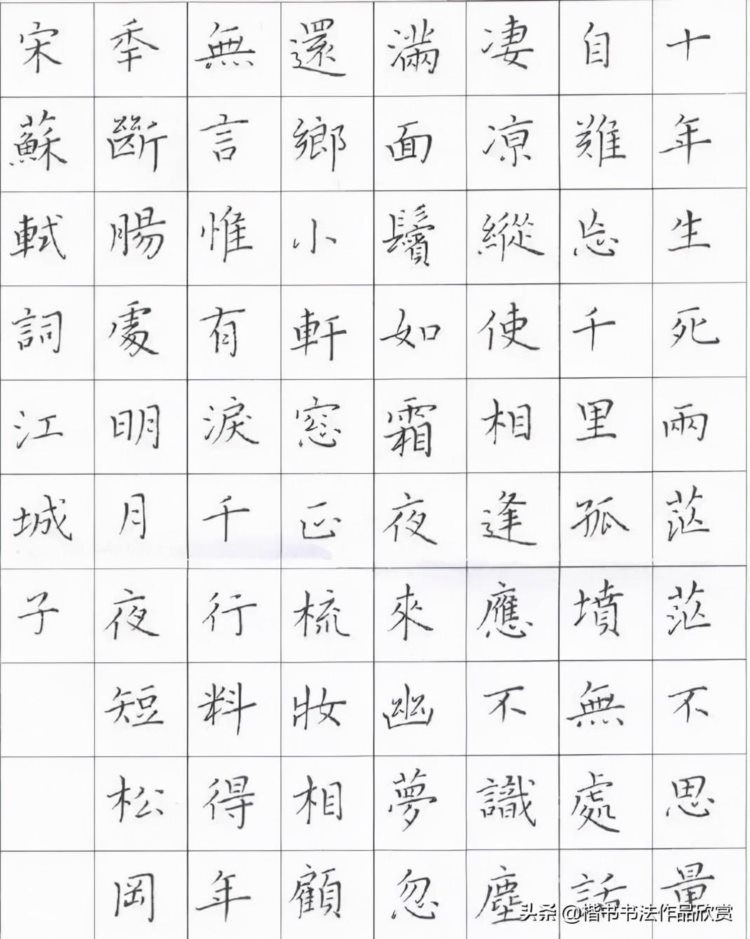 十年生死兩茫茫不思量
自難忘千里孤墳無處話
凄凉縱使相逢應不識塵
滿面鬢如霜夜來幽夢忽
還鄉小軒窓正梳妝相顧
無言惟有淚千行料得年
秊斷腸處明月夜短松岡
宋蘇軾詞江城子
头条 @楷书书法作品欣赏